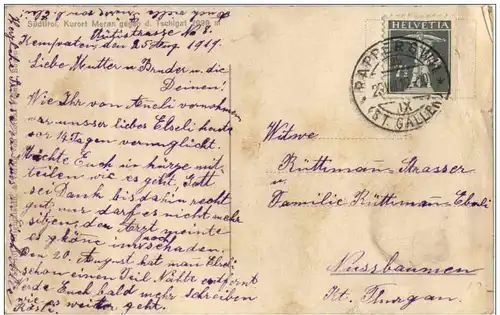 Südtirol, Kurort Meran gegen d. Tschigat 2998 m
Kempraten, den 25. Aug. 1917.
Liebe Mutter u. Bruder u. die
Deinen!
Wie Ihr von Aneli vernohmen
war unsser liebes Elseli heute
vor 14 Tagen verunglückt.
Möchte Euch in kürze mit-
teilen wie es geht, Gott
sei Dank bis dahin recht
gut, nur darf es nicht mehr
sitzen, den Arzt meinte
es könne ihm noch schaden.
Den 20. August hat man Elseli
schon einen Teil Nähte entfernt
Werde Euch bald mehr schreiben
wie es weiter geht.
HELVETIA
RAPPERSWIL
IX
(ST. GALLEN)
Witwe
Rüttimann-Strasser
u.
Familie Rüttiman-Eberli
Nussbaumen
Kt. Thurgau.